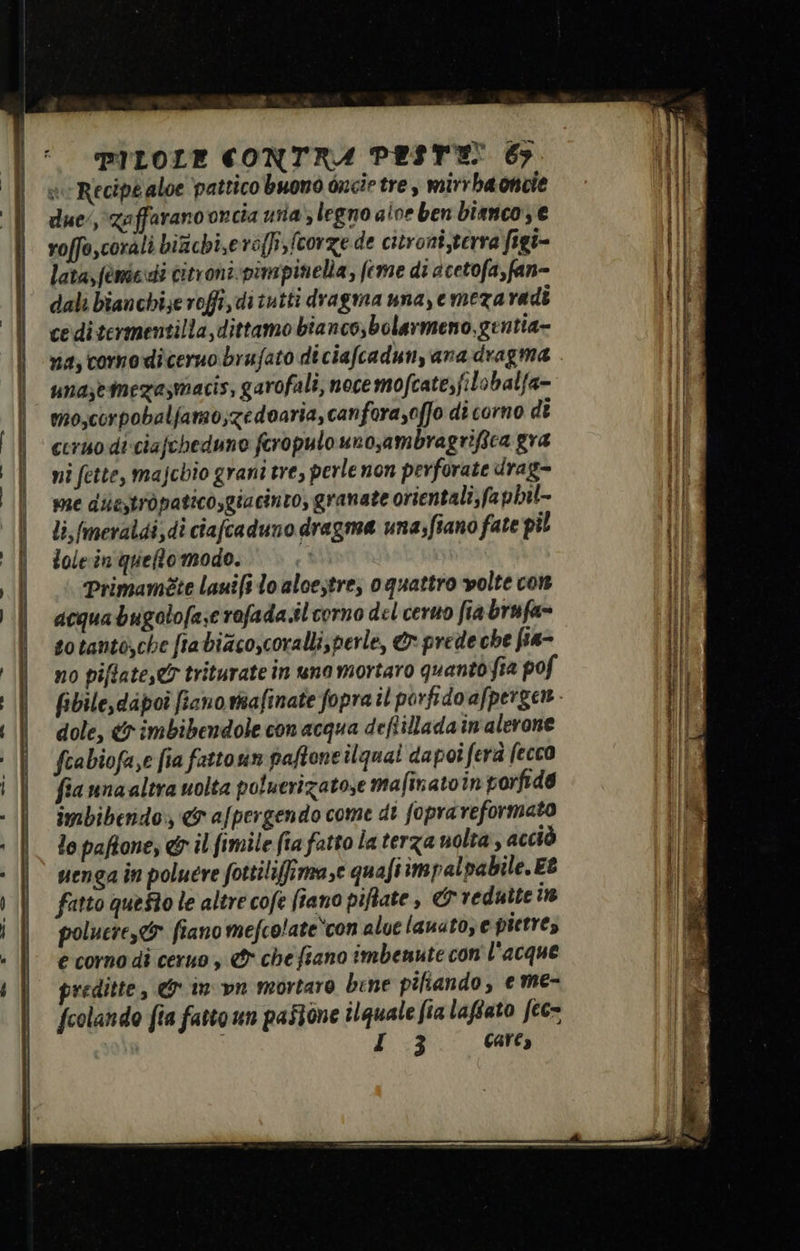 PILOLE CONTRA PESTE. 67
Recipe aloe pattico buono oncie tre, mirrha oncie
due, zaffarano oncia una, legno aloe ben bianco, e
roſſo, corali biāchi, e roſſi, ſcorze de citroni, terra ſigi-
lata, ſeme di citroni. pimpinella, ſeme di acetoſa, ſan-
dali bianchi, e roſſi, di tutti dragma una, e meza radi
ce di termentilla, dittamo bianco, bolarmeno, gentia-
na, corno di ceruo bruſato di ciaſcadun, ana dragma
una, e meza, macis, garofali, noce moſcate, ſilobalſa-
mo, corpobalſamo, zedoaria, canfora, oſſo di corno di
ceruo di ciaſcheduno ſcropulo uno, ambragriſica gra
ni ſette, maſchio grani tre, perle non perforate drag-
me due, tro patico, giacinto, granate orientali, ſaphil-
li, ſmeraldi, di ciaſcaduno dragma una, ſiano fate pil
lole in queſto modo.
Primamēte lauiſi lo aloe, tre, o quattro volte con
acqua bugoloſa, e roſada. il corno del ceruo ſia bruſa-
to tanto, che ſia biāco, coralli, perle, & prede che ſia-
no piſtate, & triturate in uno mortaro quanto ſia poſ
ſibile, dapoi ſiano maſinate ſopra il porfido aſpergen-
dole, & imbibendole con acqua deſtillada in alerone
ſcabioſa, e ſia fatto un paſtone ilqual dapoi ſerà ſecco
ſia una altra uolta poluerizato, e maſinato in porfido
imbibendo, & aſpergendo come di ſopra reformato
lo paſtone, & il ſimile ſia fatto la terza uolta, acciò
uenga in poluere ſottiliſſima, e quaſi impalpabile. Et
fatto queſto le altre coſe ſiano piſtate, & redutte in
poluere, & ſiano meſcolate con aloe lauato, e pietre,
e corno di ceruo, & che ſiano imbeuute con l'acque
preditte, & in vn mortaro bene piſtando, e me-
ſcolando ſia fatto un paſtone ilquale ſia laſſato ſec-
I 3 care,